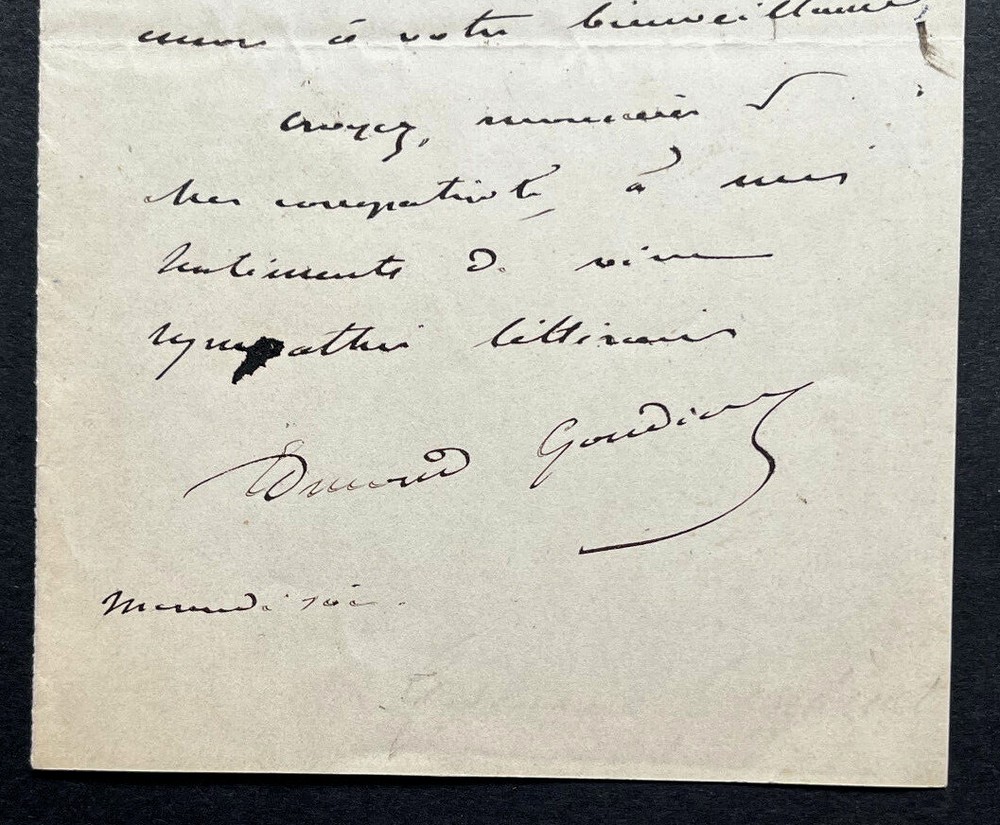 à votre bienveillance
Croyez, monsieur &
cher compatriote, à mes
sentiments de vive
sympathie littéraire
Edmond Goudeau
Mercredi soir.